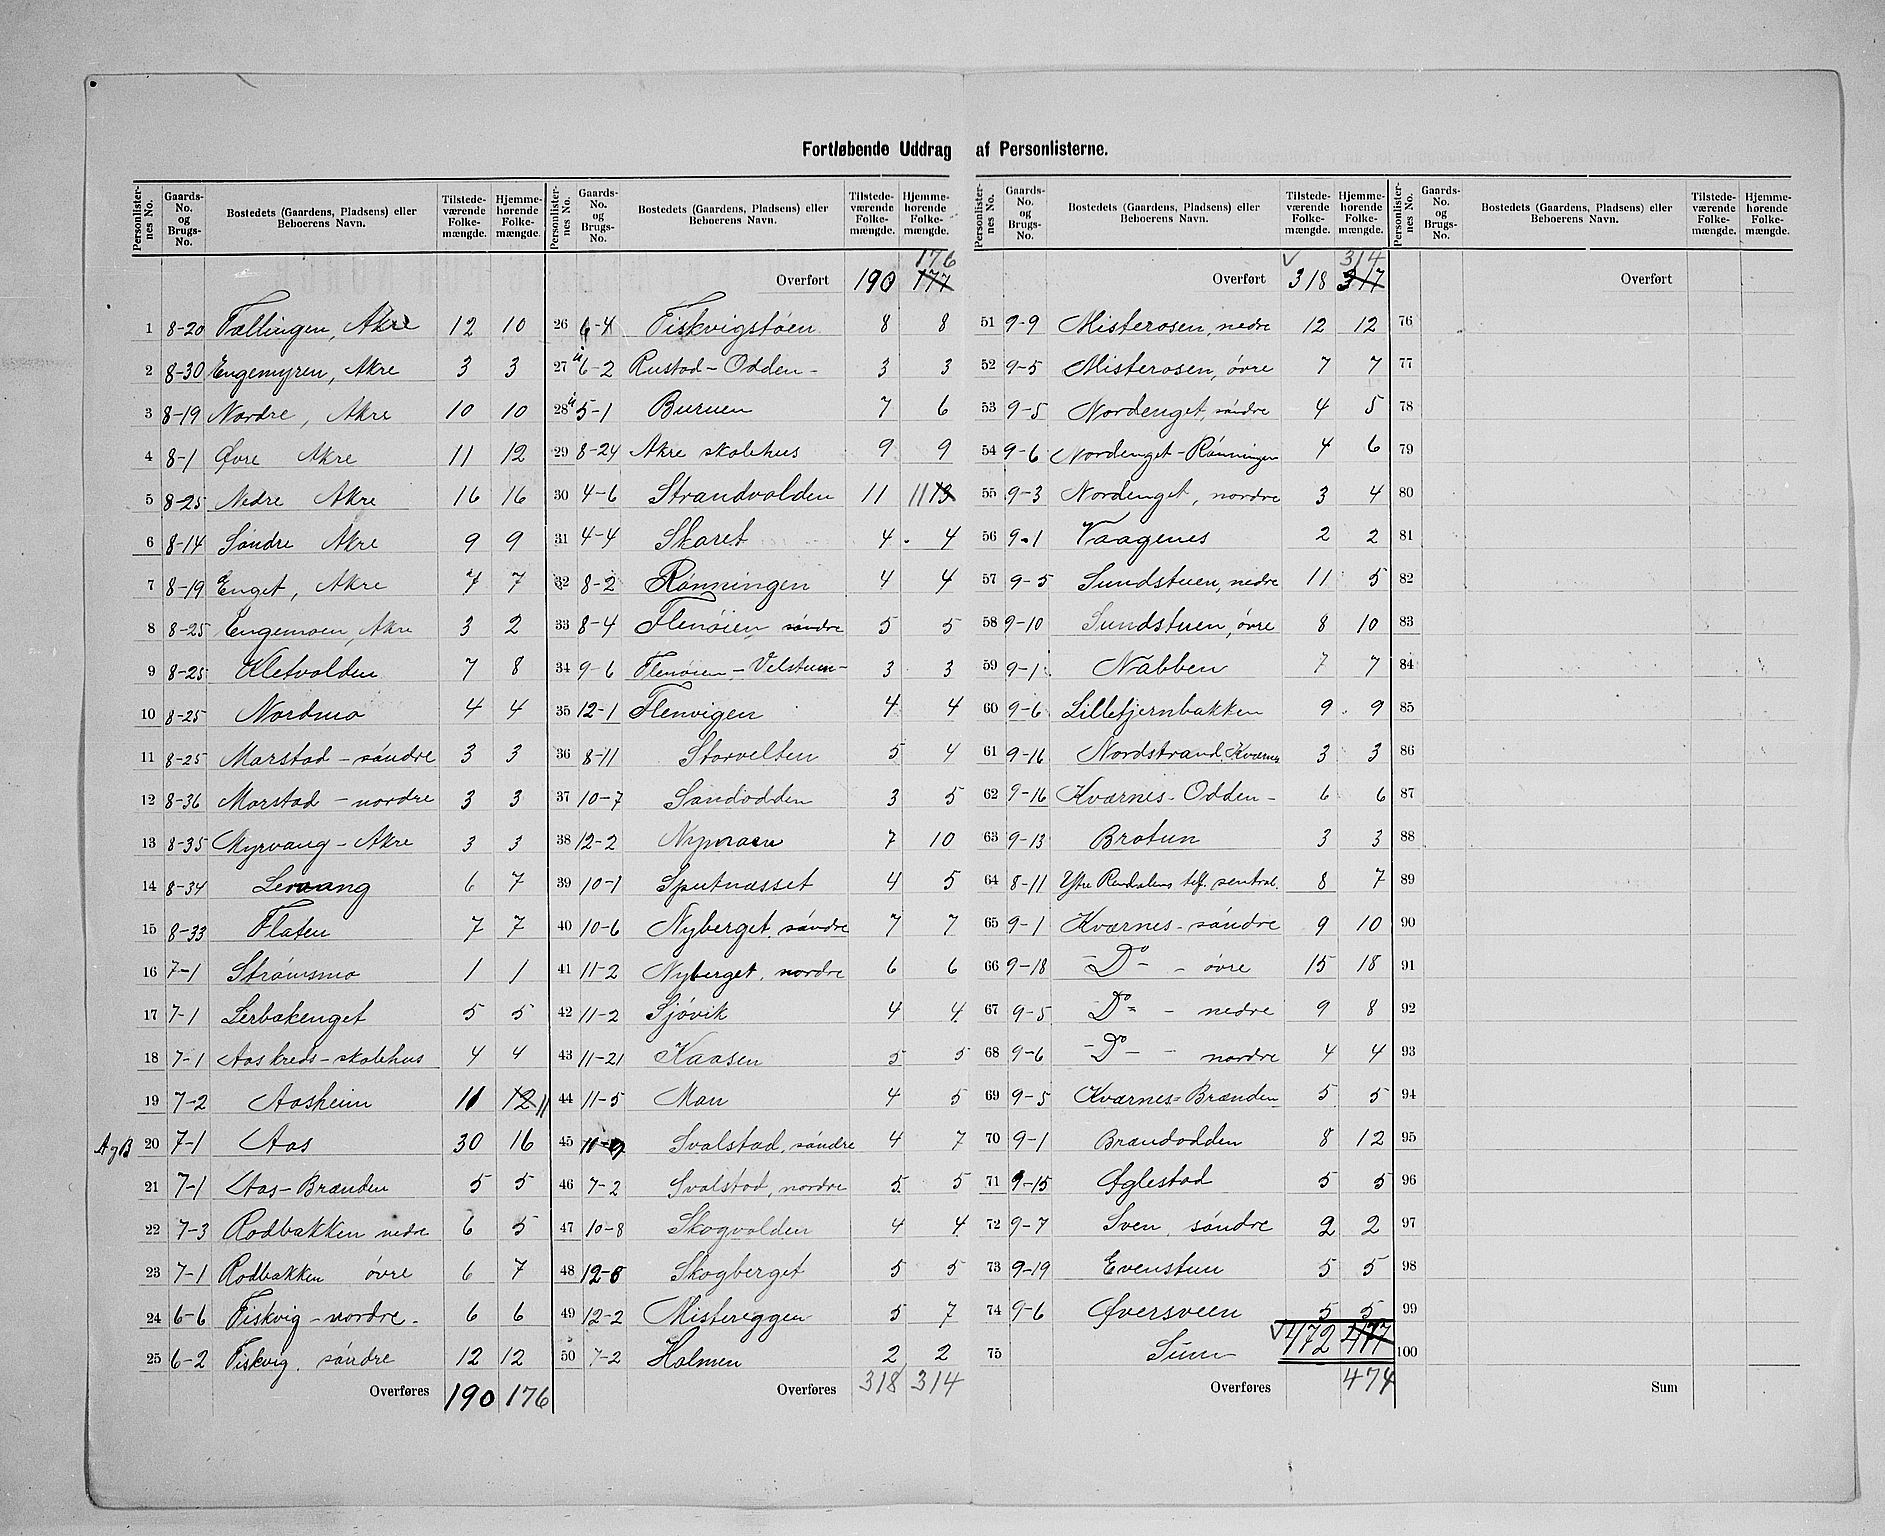 Fortløbende Uddrag af Personlisterne.
Personlisternes No. | Gaards-No. og Brugs-No. | Bostedets (Gaardens, Pladsens) eller Beboerens Navn. | Tilstedeværende Folkemængde. | Hjemmehørende Folkemængde.
1 8-20 Fællingen, Akre 12 10
2 8-30 Engemyren, Akre 3 3
3 8-19 Nordre, Akre 10 10
4 8-1 Øvre Akre 11 12
5 8-25 Nedre Akre 16 16
6 8-14 Söndre Akre 9 9
7 8-19 Enget, Akre 7 7
8 8-25 Engemoen, Akre 3 2
9 8-25 Kletvolden 7 8
10 8-25 Nordmo 4 4
11 8-25 Morstad - söndre 3 3
12 8-36 Morstad - nordre 3 3
13 8-35 Myrvang - Akre 3 3
14 8-34 Lervang 6 7
15 8-33 Flaten 7 7
16 7-1 Strömsmo 1 1
17 7-1 Lerbakenget 5 5
18 7-1 Aaskreds-skolehus 4 4
19 7-2 Aasheim 11 12 11
A og B 20 7-1 Aas 30 16
21 7-1 Aas-Brænden 5 5
22 7-3 Rodbakken nedre 6 5
23 7-1 Rodbakken øvre 6 7
24 6-6 Fiskvig - nordre - 6 6
25 6-2 Fiskvig, söndre 12 12
Overføres 190 176
Personlisternes No. | Gaards-No. og Brugs-No. | Bostedets (Gaardens, Pladsens) eller Beboerens Navn. | Tilstedeværende Folkemængde. | Hjemmehørende Folkemængde.
176
Overført 190 177
26 6-4 Fiskvigstöen 8 8
27 6-2 Rustad - Odden - 3 3
28 5-1 Buruen 7 6
29 8-24 Akre skolehus 9 9
30 4-6 Strandvolden 11 11 13
31 4-4 Skaret 4 4
32 8-2 Rönningen 4 4
33 8-4 Flenöien söndre 5 5
34 9-6 Flenöien - Velstuen - 3 3
35 12-1 Flenvigen 4 4
36 8-11 Storvelten 5 4
37 10-7 Sandodden 3 5
38 12-2 Nymoen 7 10
39 10-1 Sputnæsset 4 5
40 10-6 Nyberget, söndre 7 7
41 11-2 Nyberget, nordre 6 6
42 11-2 Sjövik 4 4
43 11-21 Kaasen 5 5
44 11-5 Mon 4 5
45 11-9 Svalstad, söndre 4 7
46 7-2 Svalstad, nordre 5 5
47 10-8 Skogvolden 4 4
48 12-8 Skogberget 5 5
49 12-2 Mistereggen 5 7
50 7-2 Holmen 2 2
Overføres 318 314
Personlisternes No. | Gaards-No. og Brugs-No. | Bostedets (Gaardens, Pladsens) eller Beboerens Navn. | Tilstedeværende Folkemængde. | Hjemmehørende Folkemængde.
314
Overført 318 317
51 9-9 Misterosen, nedre 12 12
52 9-5 Misterosen, övre 7 7
53 9-5 Nordenget, söndre 4 5
54 9-6 Nordenget - Rönningen 4 6
55 9-3 Nordenget, nordre 3 4
56 9-1 Vaagenes 2 2
57 9-5 Sundstuen, nedre 11 5
58 9-10 Sundstuen, övre 8 10
59 9-1 Nabben 7 7
60 9-6 Lilletjernbakken 9 9
61 9-16 Nordstrand, Kværnes 3 3
62 9-16 Kværnes - Odden - 6 6
63 9-13 Brotun 3 3
64 8-11 Ytre Rendalens telf. sentral. 8 7
65 9-1 Kværnes - söndre 9 10
66 9-18 - Do - - övre 15 18
67 9-5 - Do - - nedre 9 8
68 9-6 - Do - - nordre 4 4
69 9-5 Kværnes - Brænden 5 5
70 9-1 Brændodden 8 12
71 9-15 Øglestad 5 5
72 9-7 Sven, söndre 2 2
73 9-19 Evenstun 5 5
74 9-6 Øversveen 5 5
75 Sum 472 477
Overføres 474
Personlisternes No. | Gaards-No. og Brugs-No. | Bostedets (Gaardens, Pladsens) eller Beboerens Navn. | Tilstedeværende Folkemængde. | Hjemmehørende Folkemængde.
Overført
76
77
78
79
80
81
82
83
84
85
86
87
88
89
90
91
92
93
94
95
96
97
98
99
100
Sum